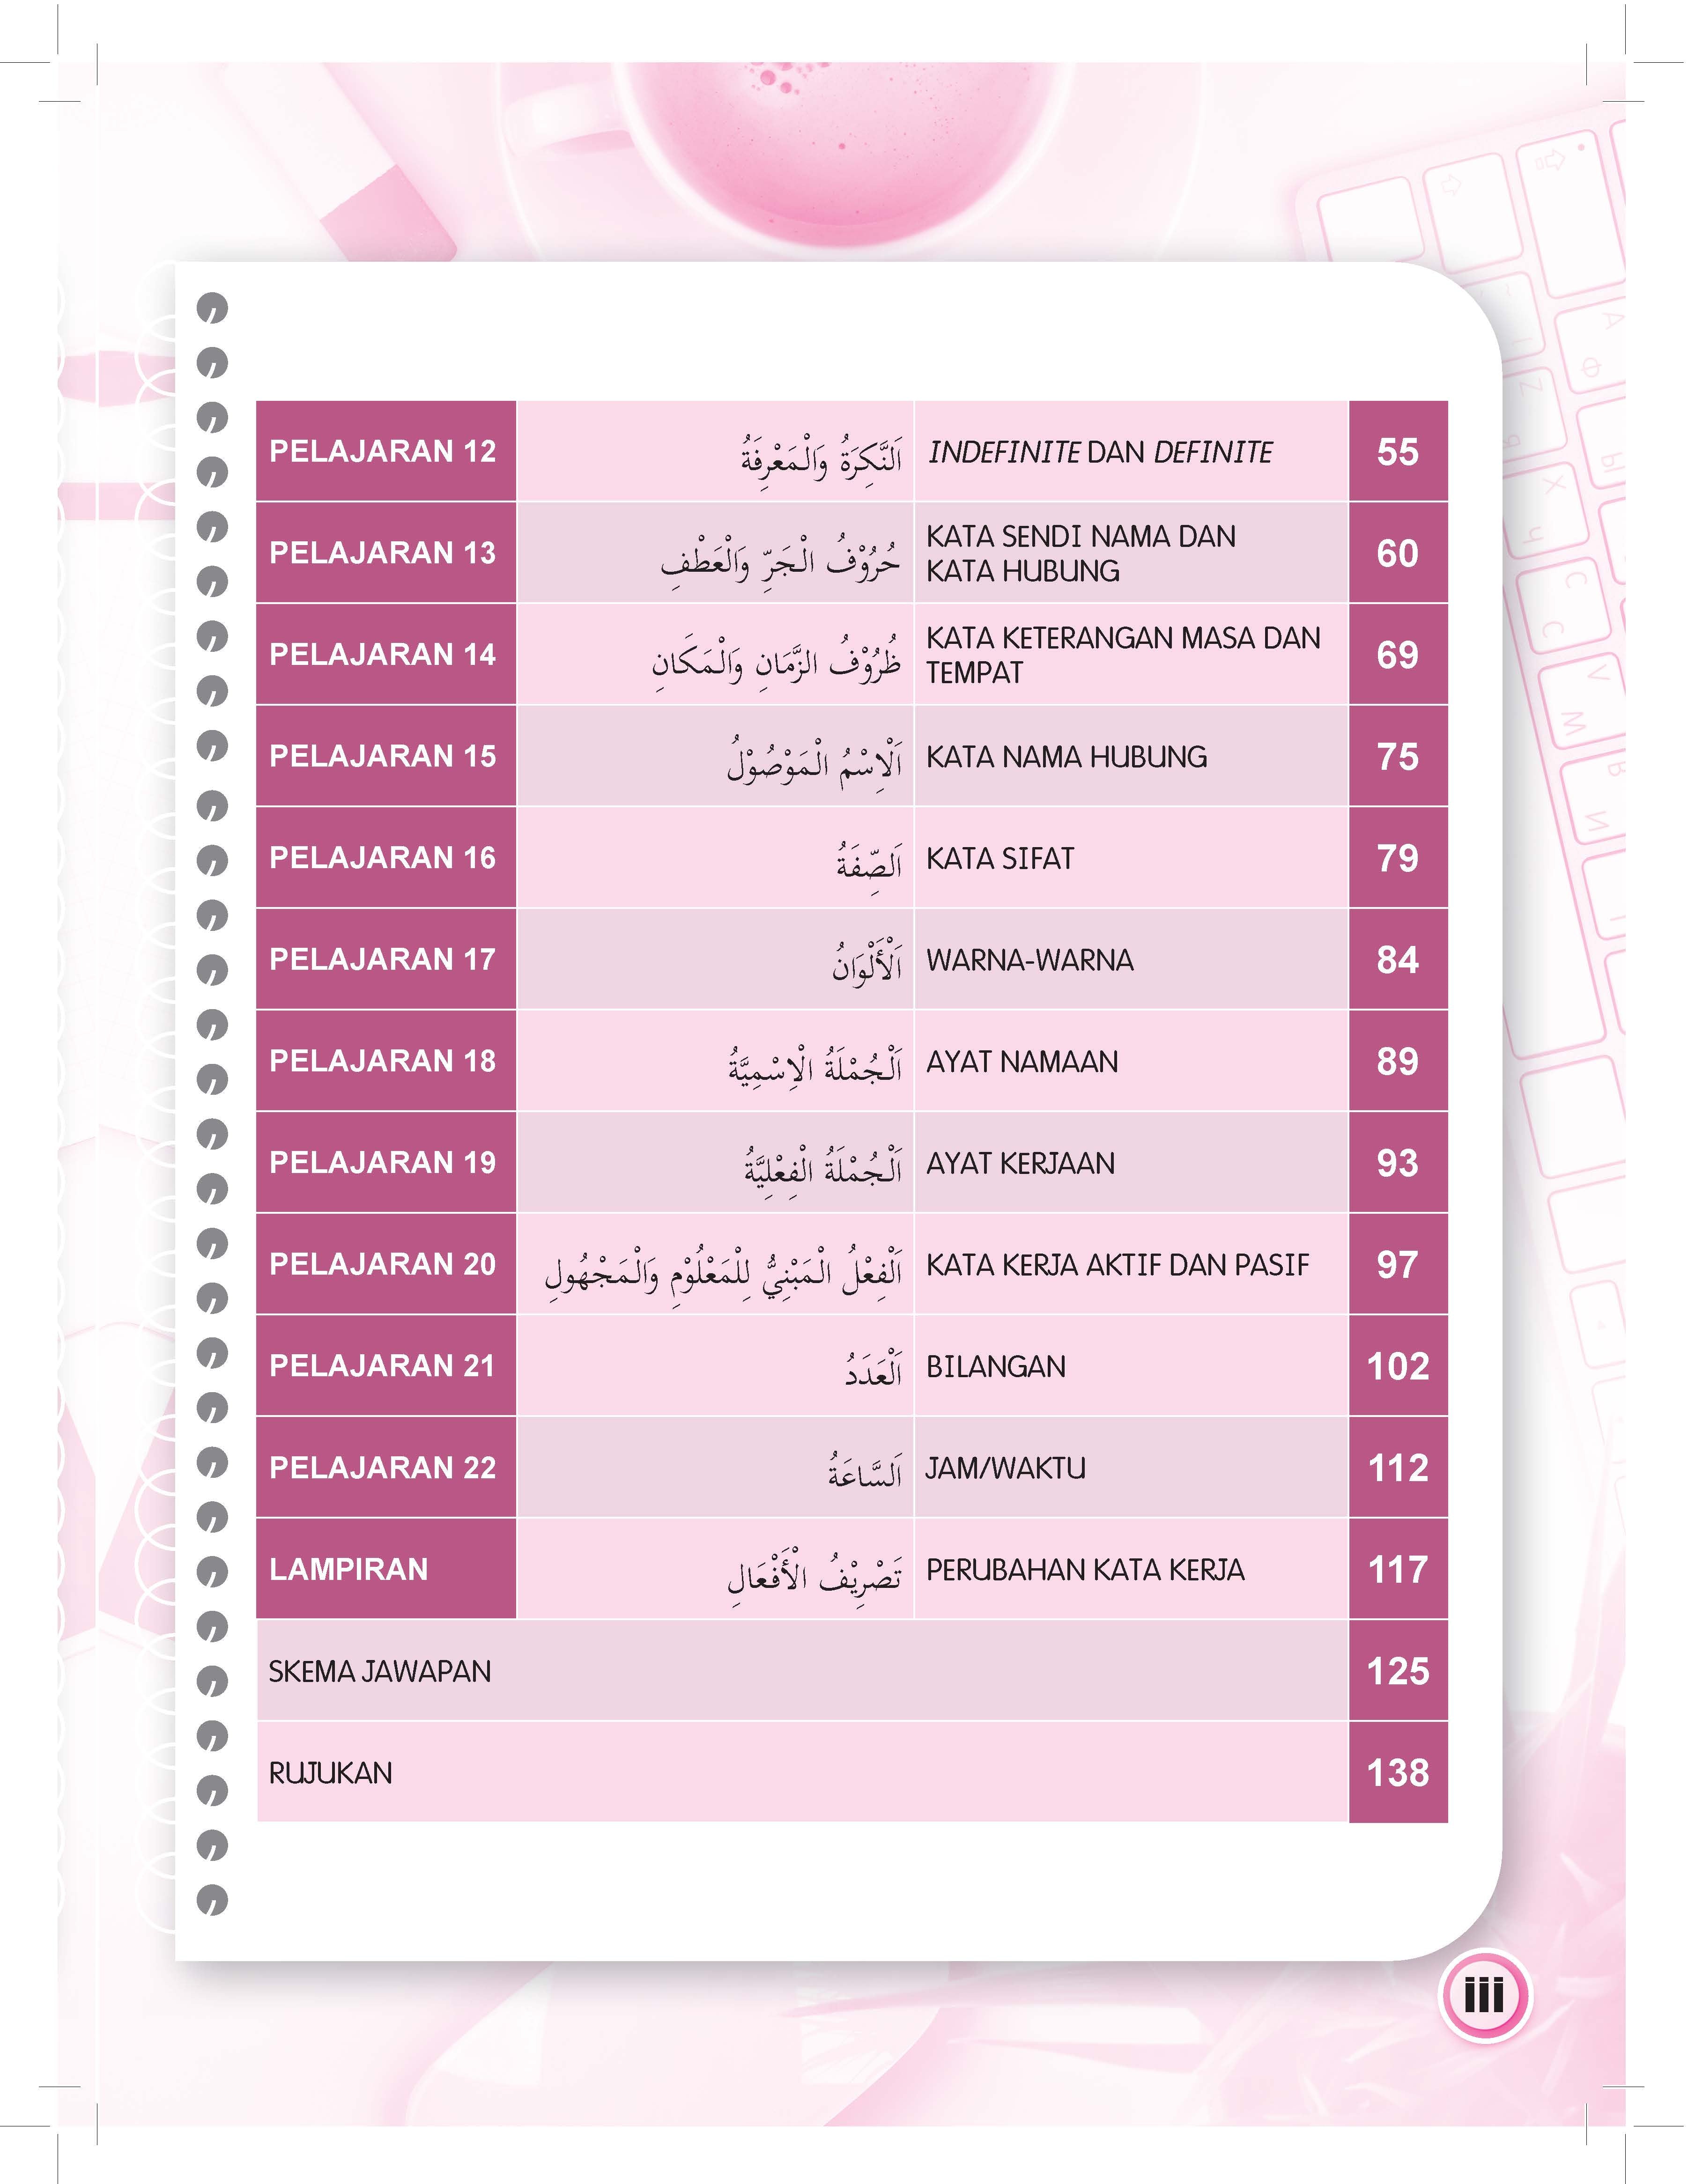 PELAJARAN 12 اَلنَّكِرَةُ وَالْمَعْرِفَةُ INDEFINITE DAN DEFINITE 55
PELAJARAN 13 حُرُوْفُ الْجَرِّ وَالْعَطْفِ KATA SENDI NAMA DAN
KATA HUBUNG 60
PELAJARAN 14 ظُرُوْفُ الزَّمَانِ وَالْمَكَانِ KATA KETERANGAN MASA DAN
TEMPAT 69
PELAJARAN 15 اَلْاِسْمُ الْمَوْصُوْلُ KATA NAMA HUBUNG 75
PELAJARAN 16 اَلصِّفَةُ KATA SIFAT 79
PELAJARAN 17 اَلْأَلْوَانُ WARNA-WARNA 84
PELAJARAN 18 اَلْجُمْلَةُ الْاِسْمِيَّةُ AYAT NAMAAN 89
PELAJARAN 19 اَلْجُمْلَةُ الْفِعْلِيَّةُ AYAT KERJAAN 93
PELAJARAN 20 اَلْفِعْلُ الْمَبْنِيُّ لِلْمَعْلُوْمِ وَالْمَجْهُولِ KATA KERJA AKTIF DAN PASIF 97
PELAJARAN 21 اَلْعَدَدُ BILANGAN 102
PELAJARAN 22 اَلسَّاعَةُ JAM/WAKTU 112
LAMPIRAN تَصْرِيْفُ الْأَفْعَالِ PERUBAHAN KATA KERJA 117
SKEMA JAWAPAN 125
RUJUKAN 138
iii